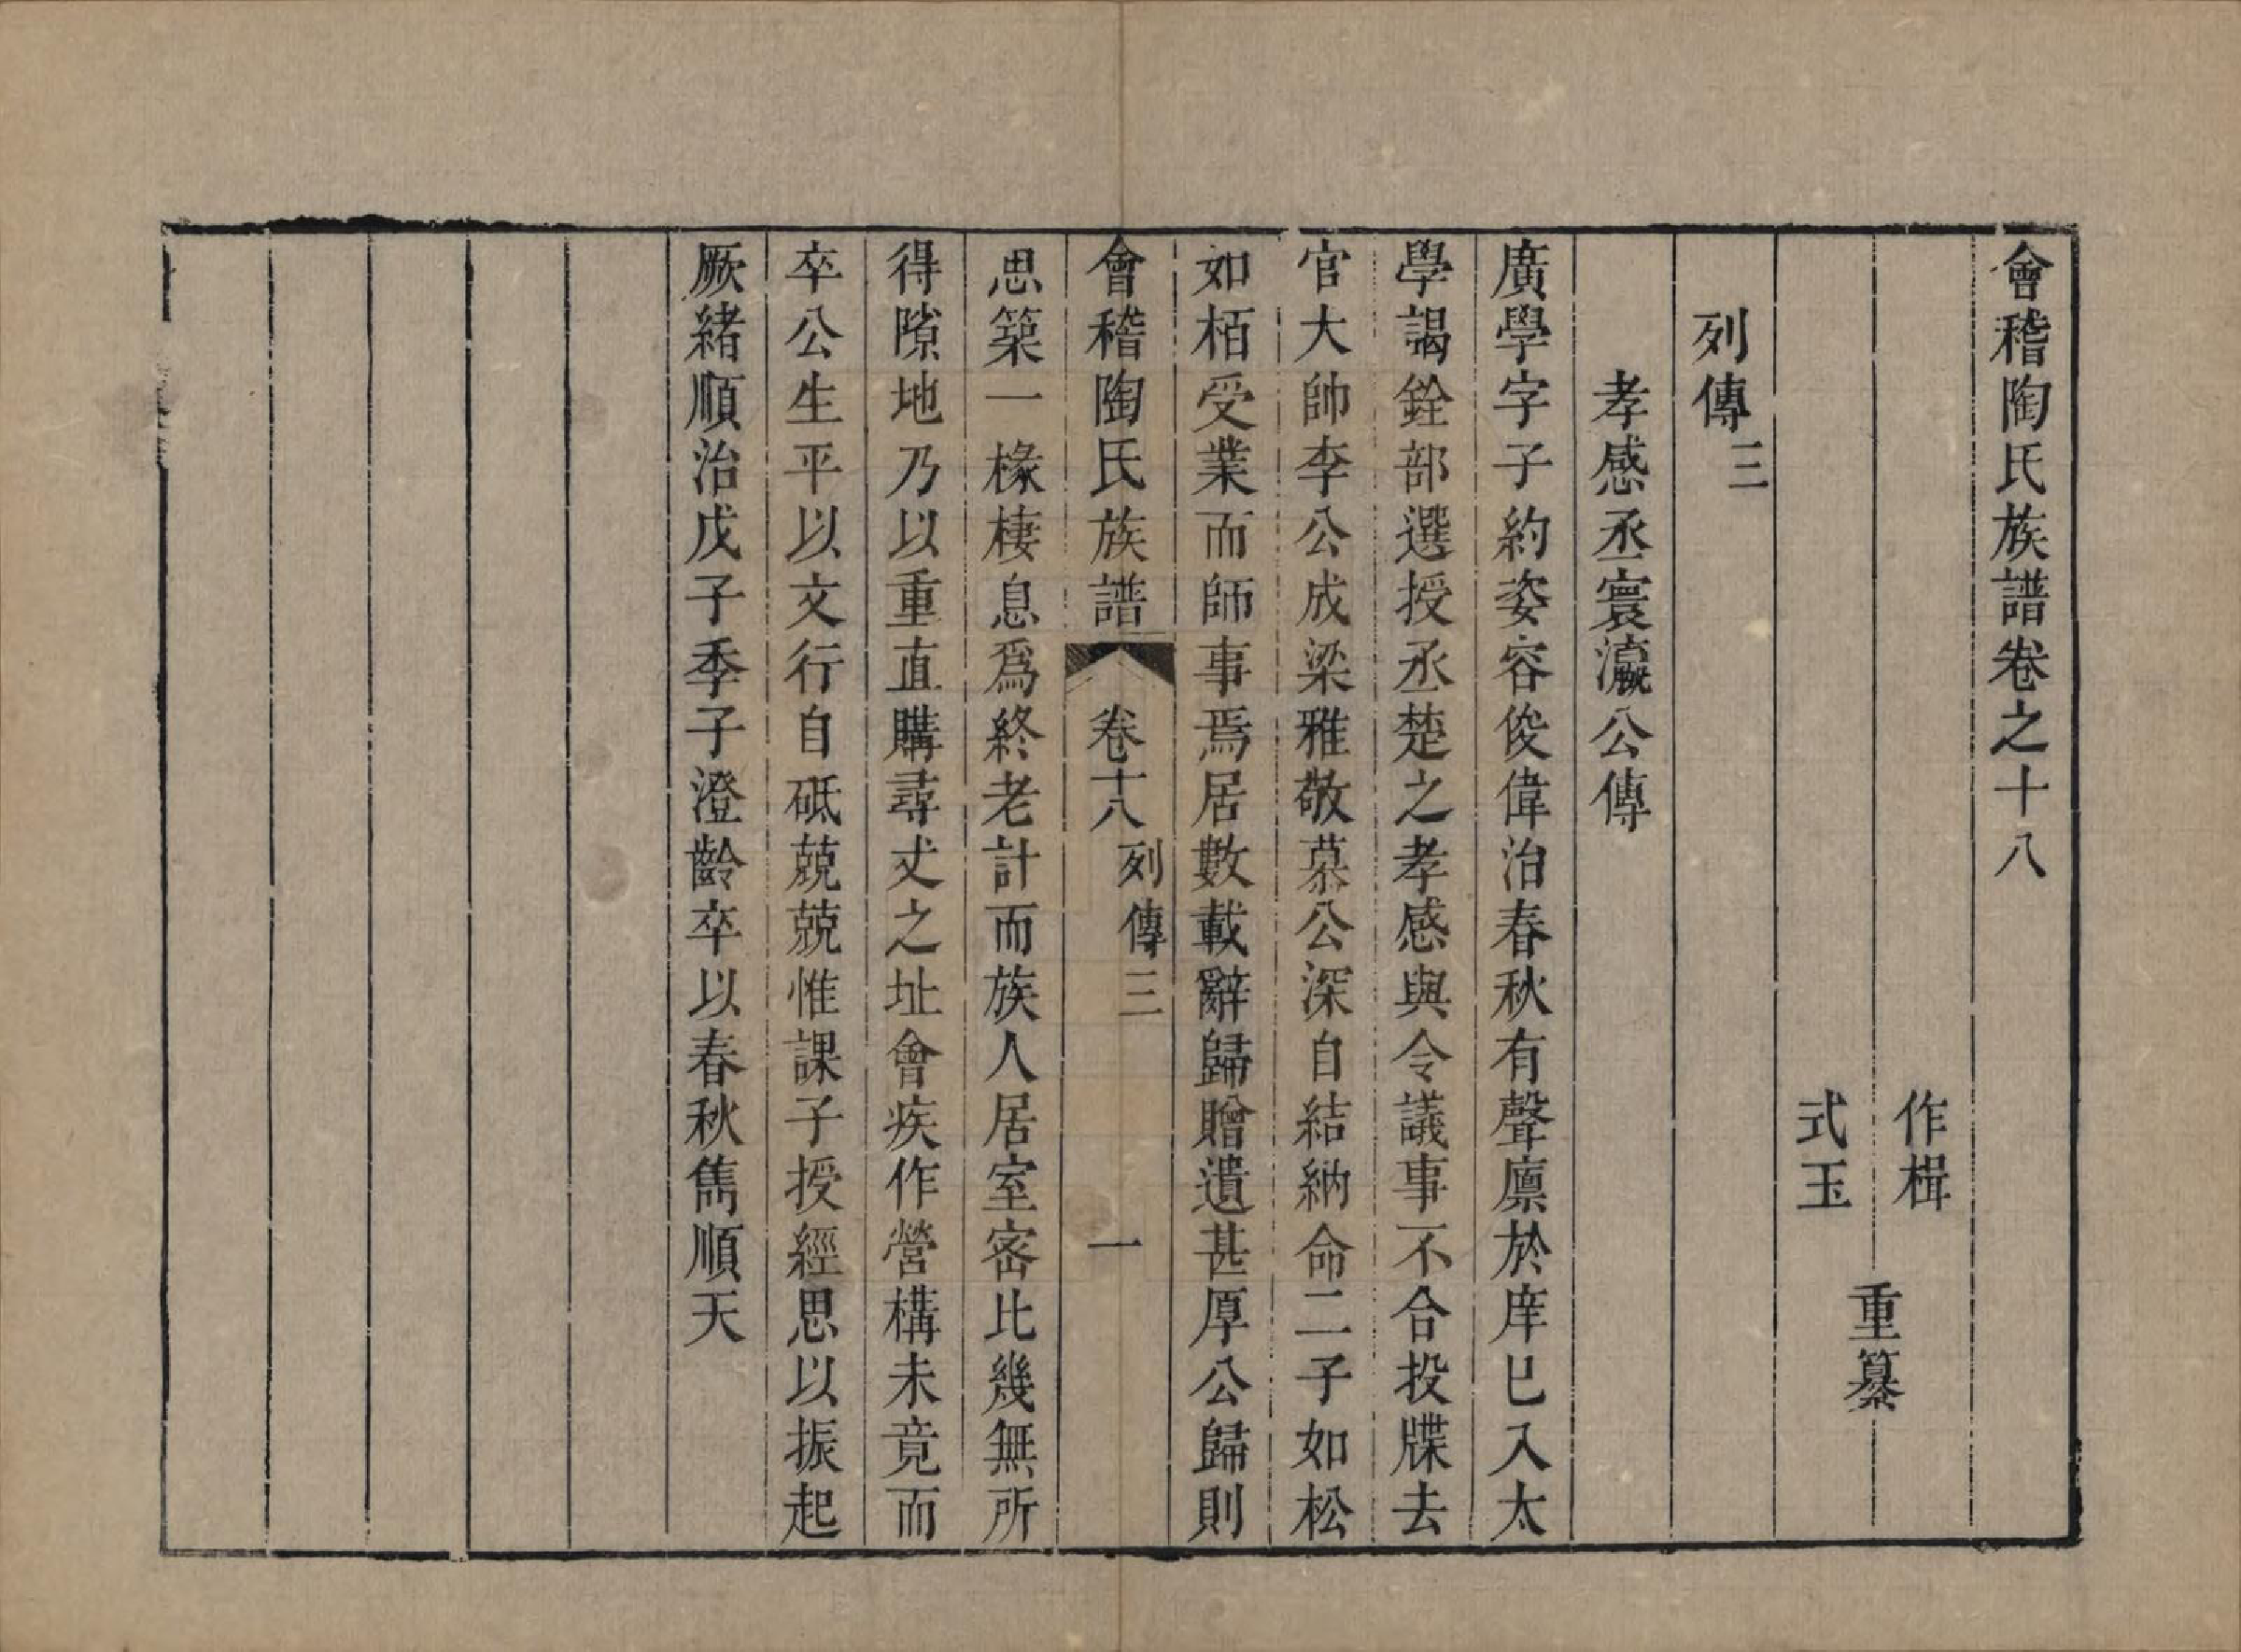 會稽陶氏族譜卷之十八
作楫
式玉
重纂
列傳三
孝感丞寰瀛公傳
廣學字子約姿容俊偉治春秋有聲廪於庠已入太
學謁銓部選授丞楚之孝感與令議事不合投牒去
官大帥李公成梁雅敬慕公深自結納命二子如松
如栢受業而師事焉居數載辭歸贈遺甚厚公歸則
會稽陶氏族譜 卷十八 列傳三 一
思築一椽棲息爲終老計而族人居室密比幾無所
得隙地乃以重直購尋丈之址會疾作營構未竟而
卒公生平以文行自砥兢兢惟課子授經思以振起
厥緒順治戊子季子澄齡卒以春秋雋順天